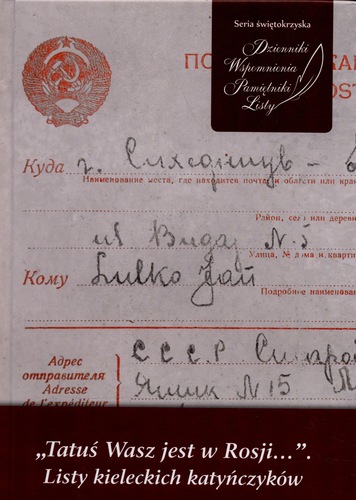 Seria świętokrzyska
Dzienniki
Wspomnienia
Pamiętniki
Listy
ПО
КА
OST
Куда г. Сухеднiув -
Наименование места, где находится почта, и области или кра
Район, село или дерев
ul Bugaj N. 5
Улица, № дома и кварти
Кому Lulko Jan
Подробное наименован
Адрес
отправителя
Adresse
de l'expéditeur
С С С Р
Ящик N 15
„Tatuś Wasz jest w Rosji…”.
Listy kieleckich katyńczyków